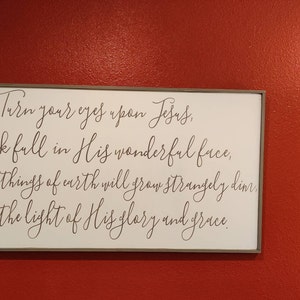 Turn your eyes upon Jesus,
k full in His wonderful face,
things of earth will grow strangely dim,
the light of His glory and grace.